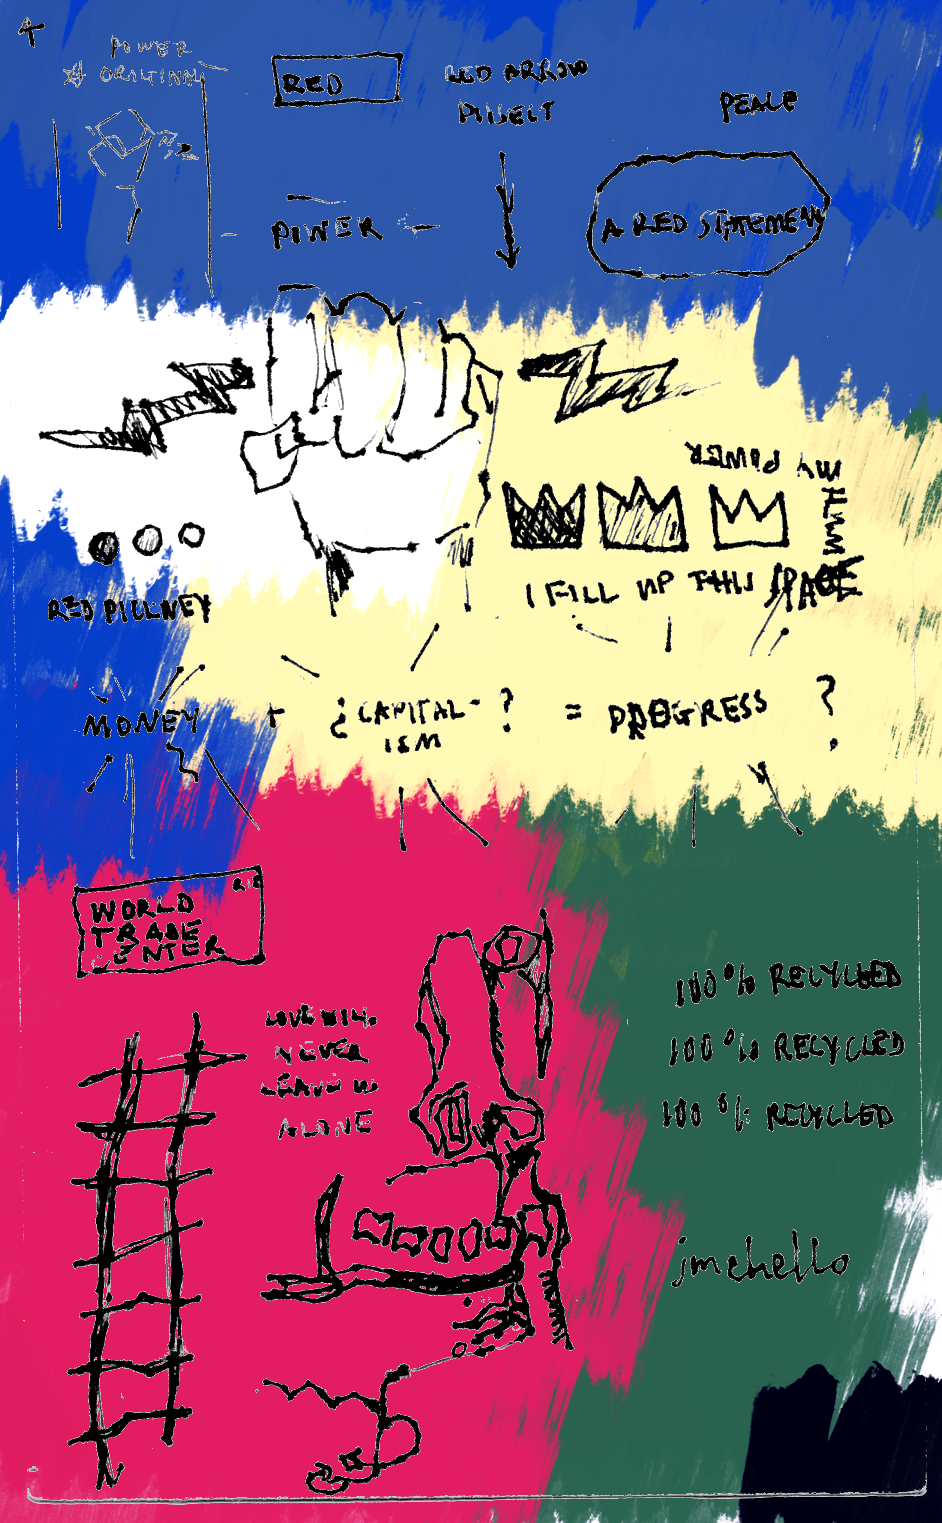 POWER
ORIGINAL
RED
RED ARROW
PEACE
POWER
A RED STATEMENT
MY POWER
WITH
I FILL UP THIS SPACE
RED PILLNEY
MONEY + ¿CAPITAL-ISM? = PROGRESS?
WORLD
TRADE
CENTER
LOVE WILL
NEVER
LEAVE US
ALONE
100% RECYCLED
100% RECYCLED
100% RECYCLED
jmchello